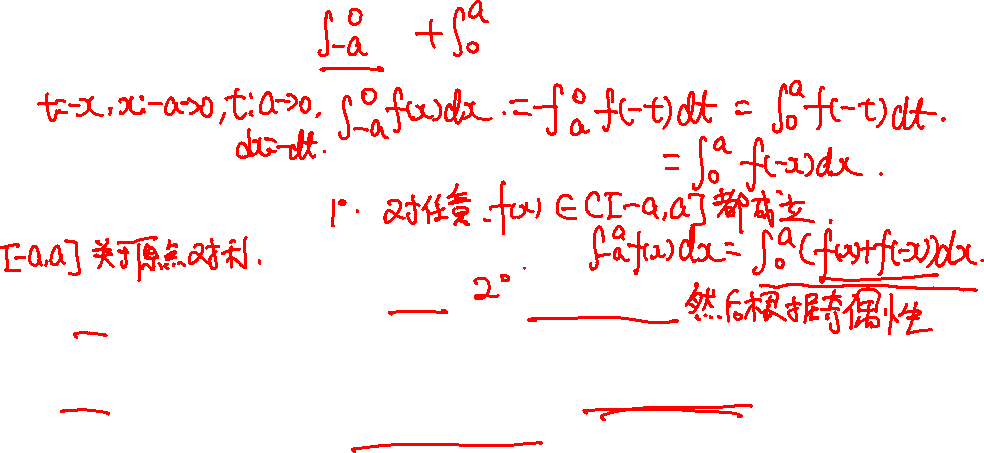 ∫_{-a}^{0} + ∫_{0}^{a}
t=-x, x:-a→0, t:a→0, ∫_{-a}^{0} f(x)dx = -∫_{a}^{0} f(-t)dt = ∫_{0}^{a} f(-t)dt.
dx=-dt.
= ∫_{0}^{a} f(-x)dx.
1°. 对任意 f(x) ∈ C[-a,a] 都成立.
[-a,a] 关于原点对称.
2°. ∫_{-a}^{a} f(x)dx = ∫_{0}^{a} (f(x)+f(-x))dx.
然后根据奇偶性